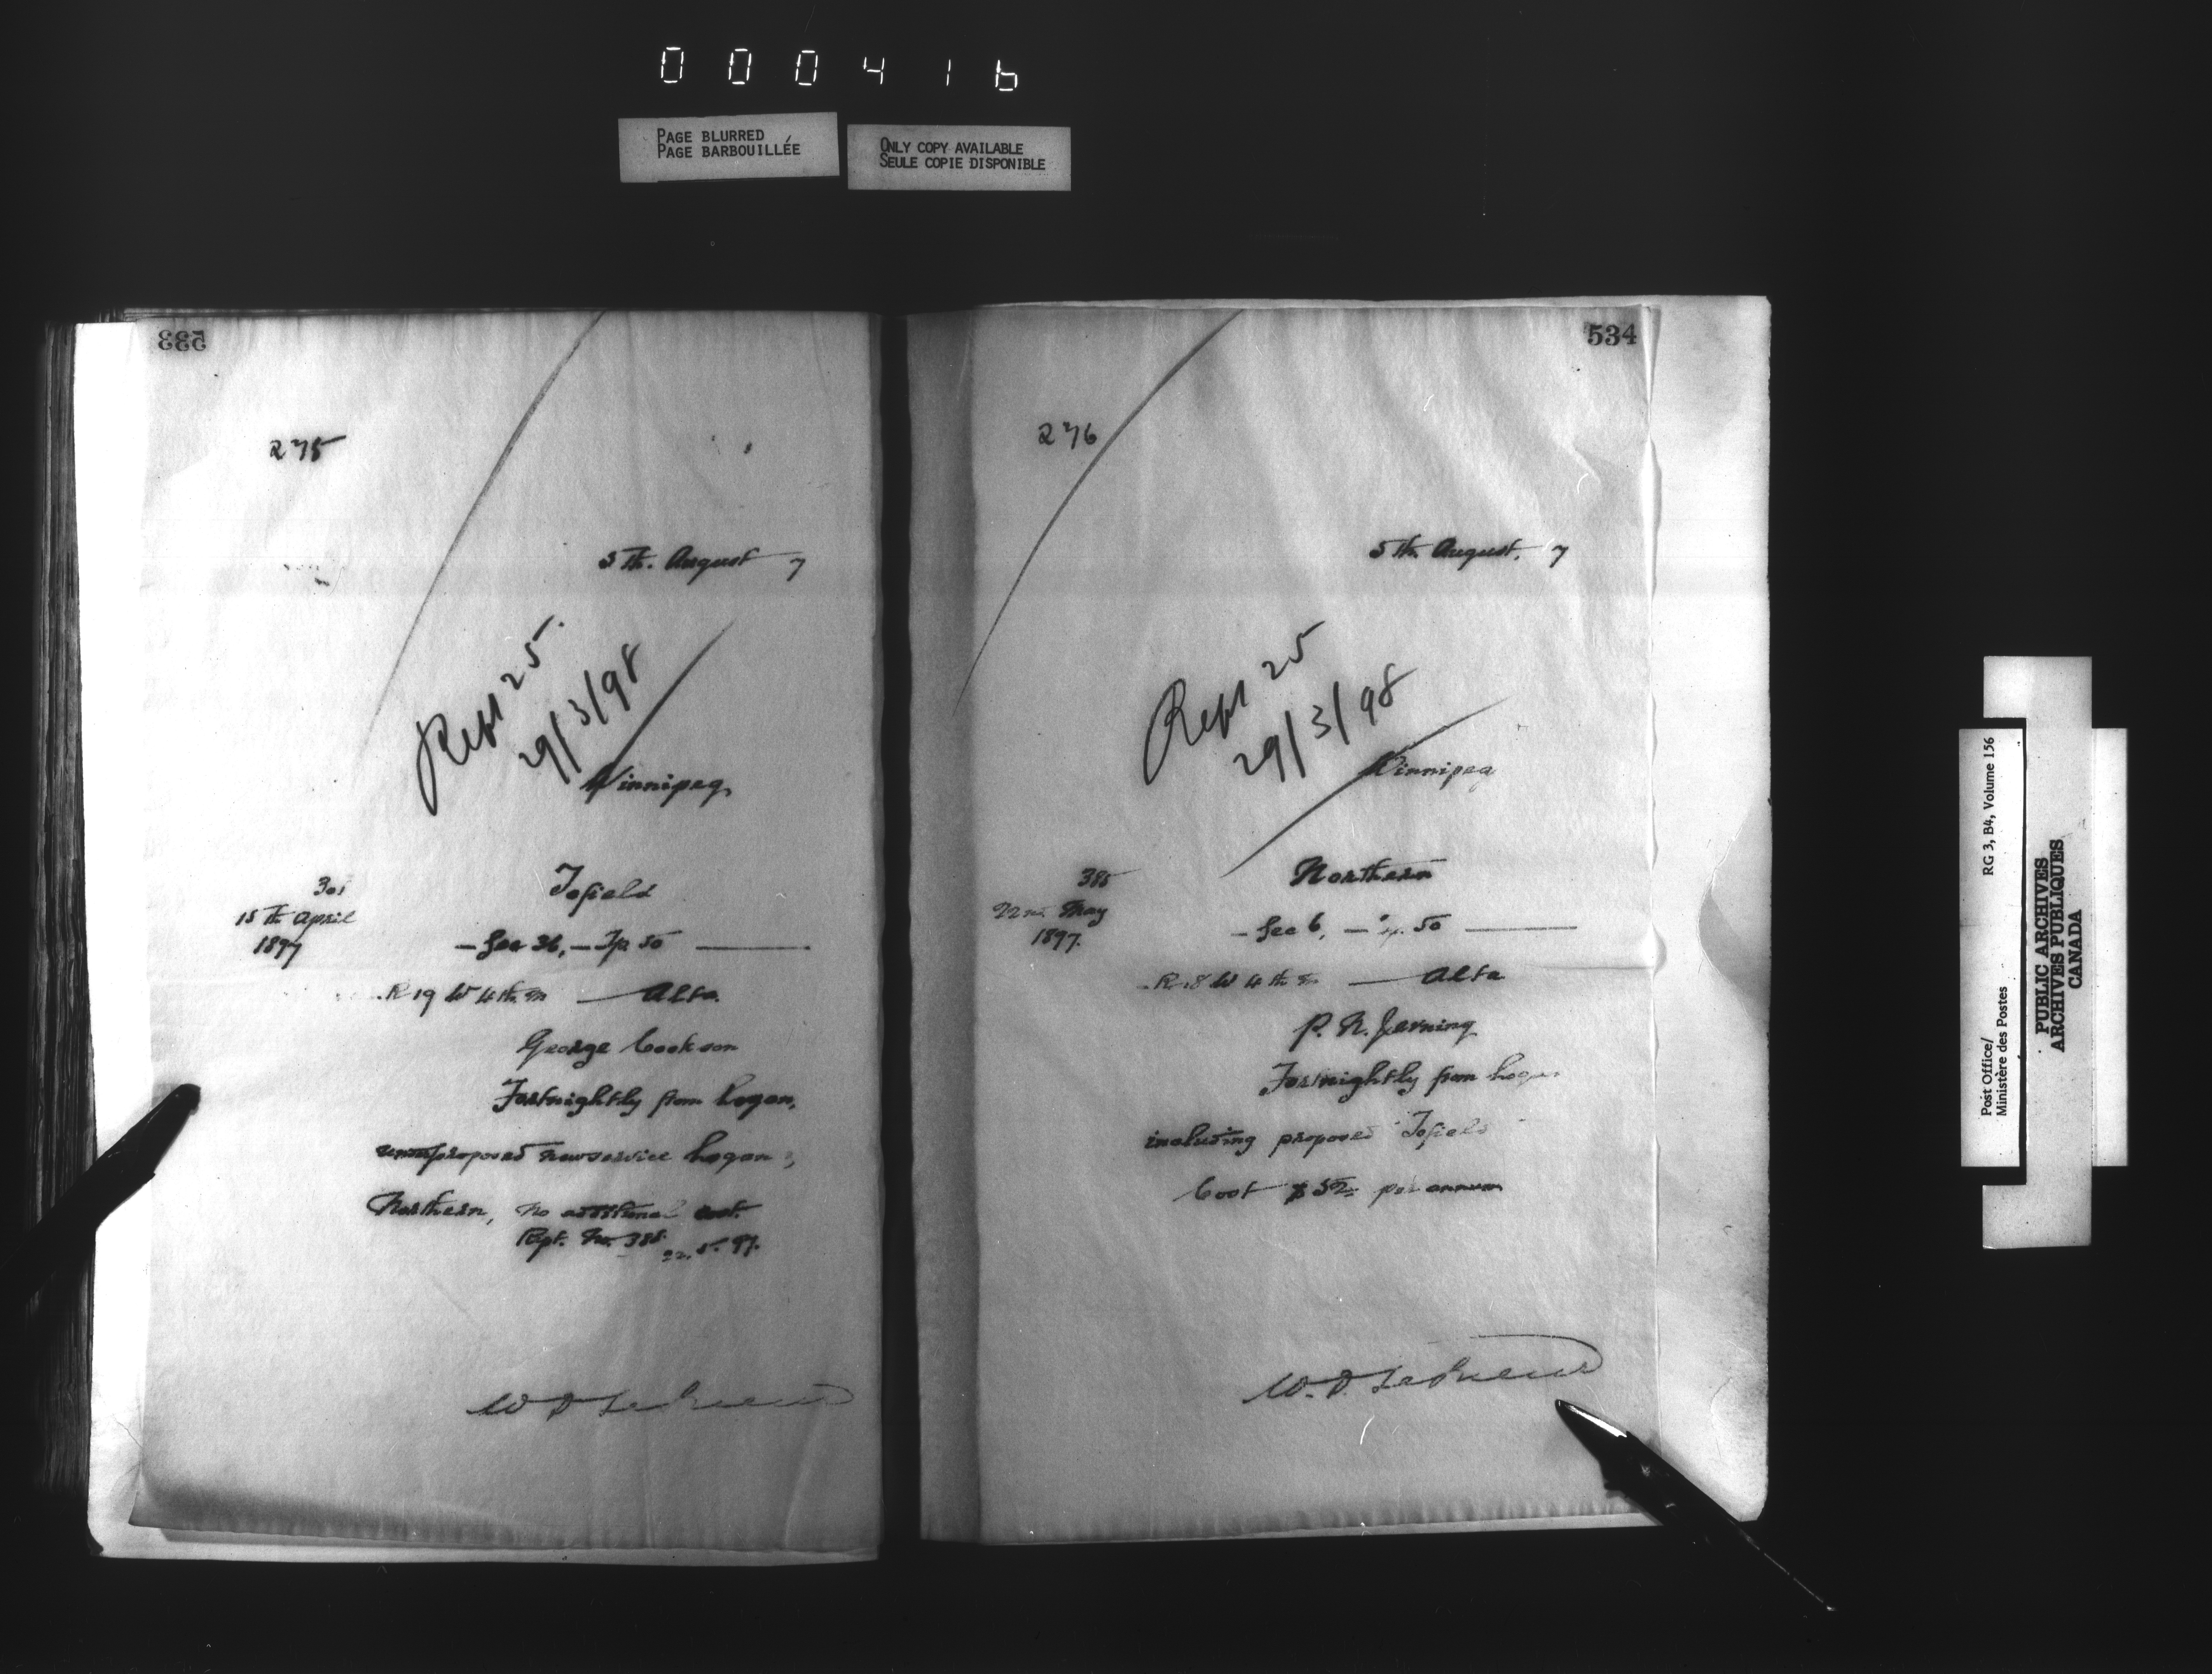 000416
PAGE BLURRED
PAGE BARBOUILLÉE
ONLY COPY AVAILABLE
SEULE COPIE DISPONIBLE
533
275
5th. August 7
Rept 25.
29/3/98
Winnipeg,
301
15th April
1897
Tofield
- Sec 36, - Tp 50
R 19 W 4th m Alta.
George Cookson
Fortnightly from Logan,
proposed new service Logan &
Northern, no additional cost.
Rpt. No. 385. 22.5.97.
W D LeSueur
534
276
5th August. 7
Rept 25
29/3/98
Winnipeg
385
22nd. May
1897.
Northern
- Sec 6, - Tp. 50
R 18 W 4th m Alta
P. N. Jevning
Fortnightly from Logan
including proposed Tofield
Cost $52 per annum
W. D. LeSueur
Post Office/
Ministère des Postes
RG 3, B4, Volume 156
PUBLIC ARCHIVES
ARCHIVES PUBLIQUES
CANADA